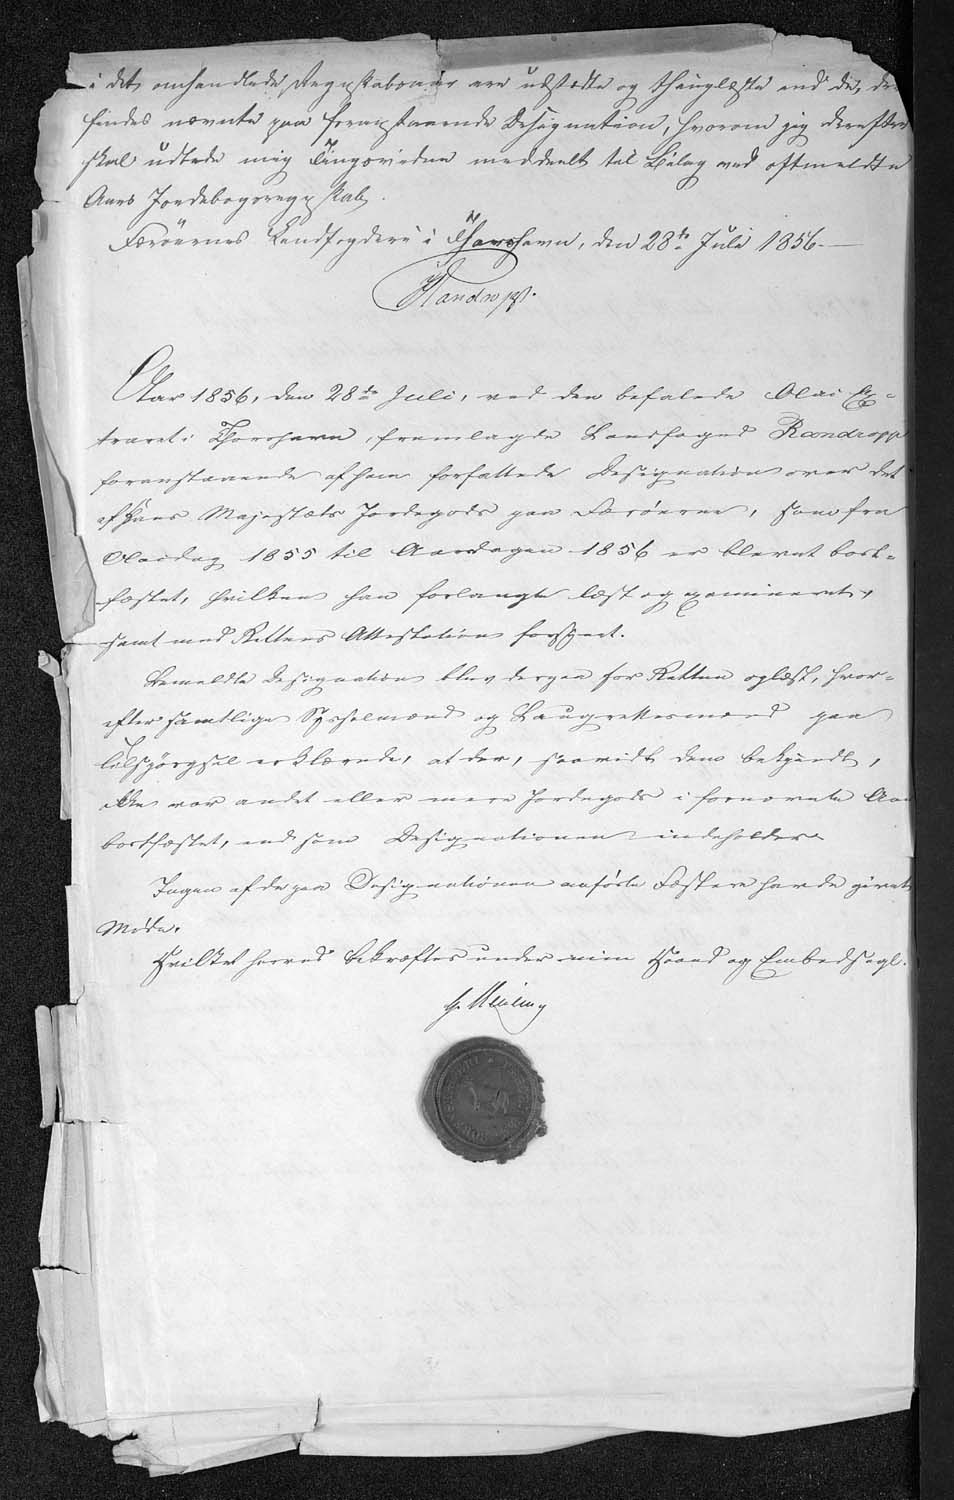 i det omhandlede Regnskabsaar ere udstædte og thinglæste end de, der
findes nævnte paa foranstaaende Designation, hvorom jeg derefter
skal udbede mig Tingsvidne meddeelt til Bilag ved oftmeldte
Aars Jordebogsregnskab.
Færöernes Landfogderi i Thorshavn, den 28de Juli 1856.
Randropp.
Aar 1856, den 28de Juli, ved den befalede Olai Ex-
traret i Thorshavn, fremlagde Landfoged Randropp
foranstaaende af ham forfattede Designation over det
af Hans Majestæts Jordegods paa Færöerne, som fra
Olaidag 1855 til Aarsdagen 1856 er blevet bort-
fæstet, hvilken han forlangte læst og examineret,
samt med Rettens Attestation forsynet.
Bemeldte Designation blev derpaa for Retten oplæst, hvor-
efter samtlige Sysselmænd og Laugrettesmænd paa
Tilspörgsel erklærede, at der, saavidt dem bekjendt,
ikke var andet eller mere Jordegods i fornævnte Aar
bortfæstet, end som Designationen indeholder.
Ingen af de paa Designationen anförte Fæstere havde givet
Möde.
Hvilket herved bekræftes under min Haand og Embedsegl.